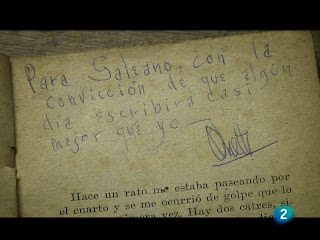 Para Galeano, con la
convicción de que algún
día escribirá casi
mejor que yo —
Onetti
Hace un rato me estaba paseando por
el cuarto y se me ocurrió de golpe que lo
vez. Hay dos catres, si-
2